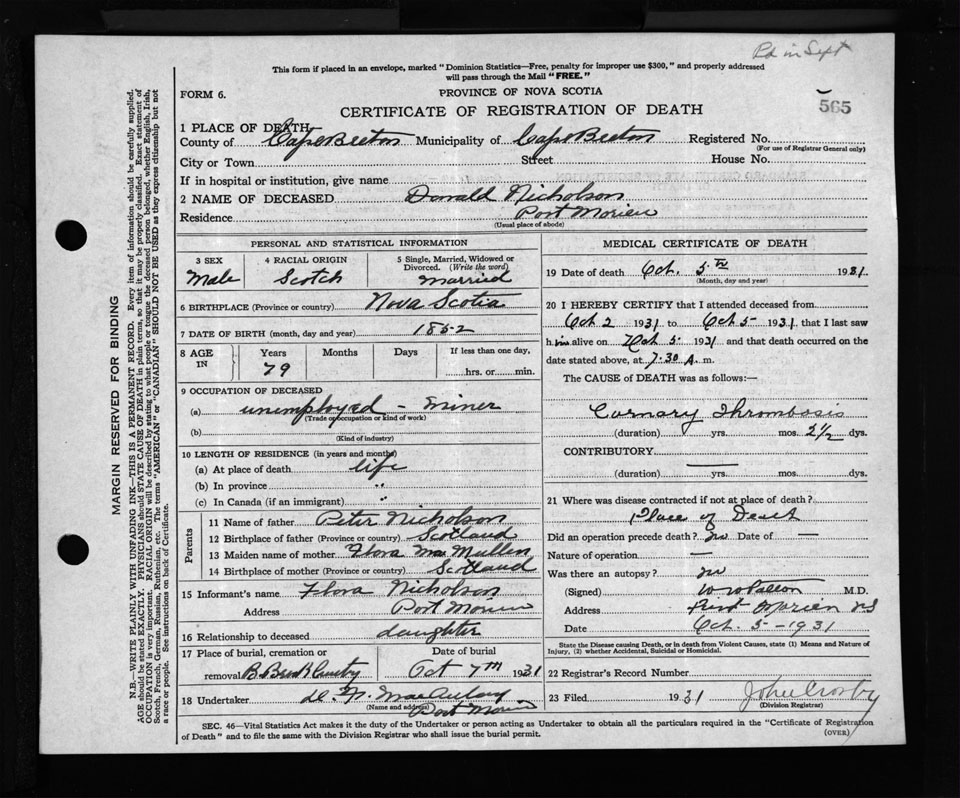 Pd in Sept
This form if placed in an envelope, marked "Dominion Statistics—Free, penalty for improper use $300," and properly addressed
will pass through the Mail "FREE."
FORM 6.
PROVINCE OF NOVA SCOTIA
565
CERTIFICATE OF REGISTRATION OF DEATH
1 PLACE OF DEATH
County of Cape Breton Municipality of Cape Breton Registered No.
(For use of Registrar General only)
City or Town Street House No.
If in hospital or institution, give name
2 NAME OF DECEASED Donald Nicholson
Residence Port Morien
(Usual place of abode)
PERSONAL AND STATISTICAL INFORMATION
3 SEX 4 RACIAL ORIGIN 5 Single, Married, Widowed or
Divorced. (Write the word)
Male Scotch Married
6 BIRTHPLACE (Province or country) Nova Scotia
7 DATE OF BIRTH (month, day and year) 1852
8 AGE IN Years Months Days If less than one day,
79 hrs. or min.
9 OCCUPATION OF DECEASED
(a) unemployed - miner
(Trade or occupation or kind of work)
(b)
(Kind of industry)
10 LENGTH OF RESIDENCE (in years and months)
(a) At place of death life
(b) In province "
(c) In Canada (if an immigrant) "
Parents
11 Name of father Peter Nicholson
12 Birthplace of father (Province or country) Scotland
13 Maiden name of mother Flora Mac Mullen
14 Birthplace of mother (Province or country) Scotland
15 Informant's name Flora Nicholson
Address Port Morien
16 Relationship to deceased daughter
17 Place of burial, cremation or Date of burial
removal Oct 7th 1931
18 Undertaker MacAulay
(Name and address) Port Morien
MEDICAL CERTIFICATE OF DEATH
19 Date of death Oct. 5th 1931
(Month, day and year)
20 I HEREBY CERTIFY that I attended deceased from
Oct 2 1931 to Oct 5- 1931, that I last saw
him alive on Oct 5. 1931 and that death occurred on the
date stated above, at 7:30 A. m.
The CAUSE of DEATH was as follows:—
Cornary Thrombosis
(duration) yrs. mos. 2½ dys.
CONTRIBUTORY
(duration) yrs. mos. dys.
21 Where was disease contracted if not at place of death?
Place of Death
Did an operation precede death? no Date of —
Nature of operation —
Was there an autopsy? no
(Signed) M.D.
Address Port Morien NS
Date Oct. 5-1931
State the Disease causing Death, or in death from Violent Causes, state (1) Means and Nature of
Injury, (2) whether Accidental, Suicidal or Homicidal.
22 Registrar's Record Number
23 Filed 1931 John Crosby
(Division Registrar)
SEC. 46—Vital Statistics Act makes it the duty of the Undertaker or person acting as Undertaker to obtain all the particulars required in the "Certificate of Registration
of Death" and to file the same with the Division Registrar who shall issue the burial permit.
(OVER)
MARGIN RESERVED FOR BINDING
N.B.—WRITE PLAINLY WITH UNFADING INK—THIS IS A PERMANENT RECORD. Every item of information should be carefully supplied.
AGE should be stated EXACTLY. PHYSICIANS should STATE CAUSE OF DEATH in plain terms, so that it may be properly classified. Exact statement of
OCCUPATION is very important. RACIAL ORIGIN will be described by stating to what people or tongue the deceased person belonged, whether English, Irish,
Scotch, French, German, Russian, Ruthenian, etc. The terms "AMERICAN" or "CANADIAN" SHOULD NOT BE USED as they express citizenship but not
a race or people. See instructions on back of Certificate.